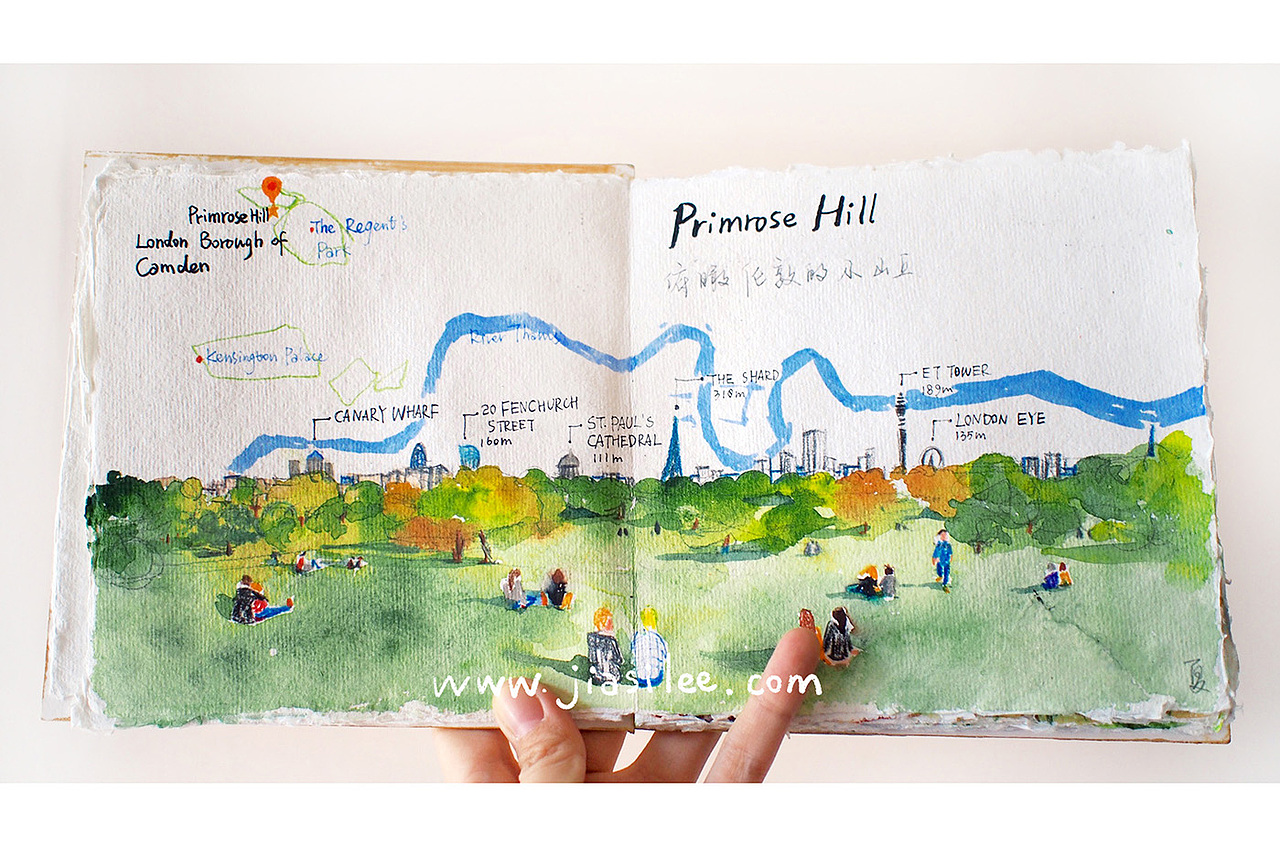 Primrose Hill
London Borough of
Camden
The Regent's
Park
Kensington Palace
River Thames
CANARY WHARF
20 FENCHURCH
STREET
160m
ST. PAUL'S
CATHEDRAL
111m
Primrose Hill
俯瞰伦敦的小山丘
THE SHARD
318m
ET TOWER
189m
LONDON EYE
135m
夏
www.jiasilee.com